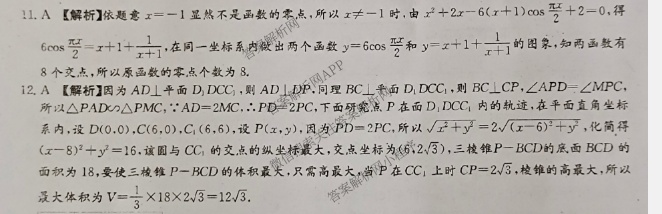 11. A 【解析】依题意 x=－1 显然不是函数的零点,所以 x≠－1 时,由 x²+2x－6(x+1)cos πx/2 +2=0,得
6cos πx/2 =x+1+ 1/(x+1) ,在同一坐标系内做出两个函数 y=6cos πx/2 和 y=x+1+ 1/(x+1) 的图象,知两函数有
8 个交点,所以原函数的零点个数为 8.
12. A 【解析】因为 AD⊥平面 D₁DCC₁,则 AD⊥DP.同理 BC⊥平面 D₁DCC₁,则 BC⊥CP,∠APD=∠MPC,
所以△PAD∽△PMC,∵AD=2MC,∴PD=2PC,下面研究点 P 在面 D₁DCC₁ 内的轨迹,在平面直角坐标
系内,设 D(0,0),C(6,0),C₁(6,6),设 P(x,y),因为 PD=2PC,所以 √(x²+y²) =2√((x－6)²+y²) ,化简得
(x－8)²+y²=16,该圆与 CC₁ 的交点的纵坐标最大,交点坐标为(6,2√3),三棱锥P－BCD的底面 BCD 的
面积为 18,要使三棱锥 P－BCD 的体积最大,只需高最大,当 P 在 CC₁ 上时 CP=2√3,棱锥的高最大,所以
最大体积为 V= 1/3 ×18×2√3=12√3.
答案解析网APP